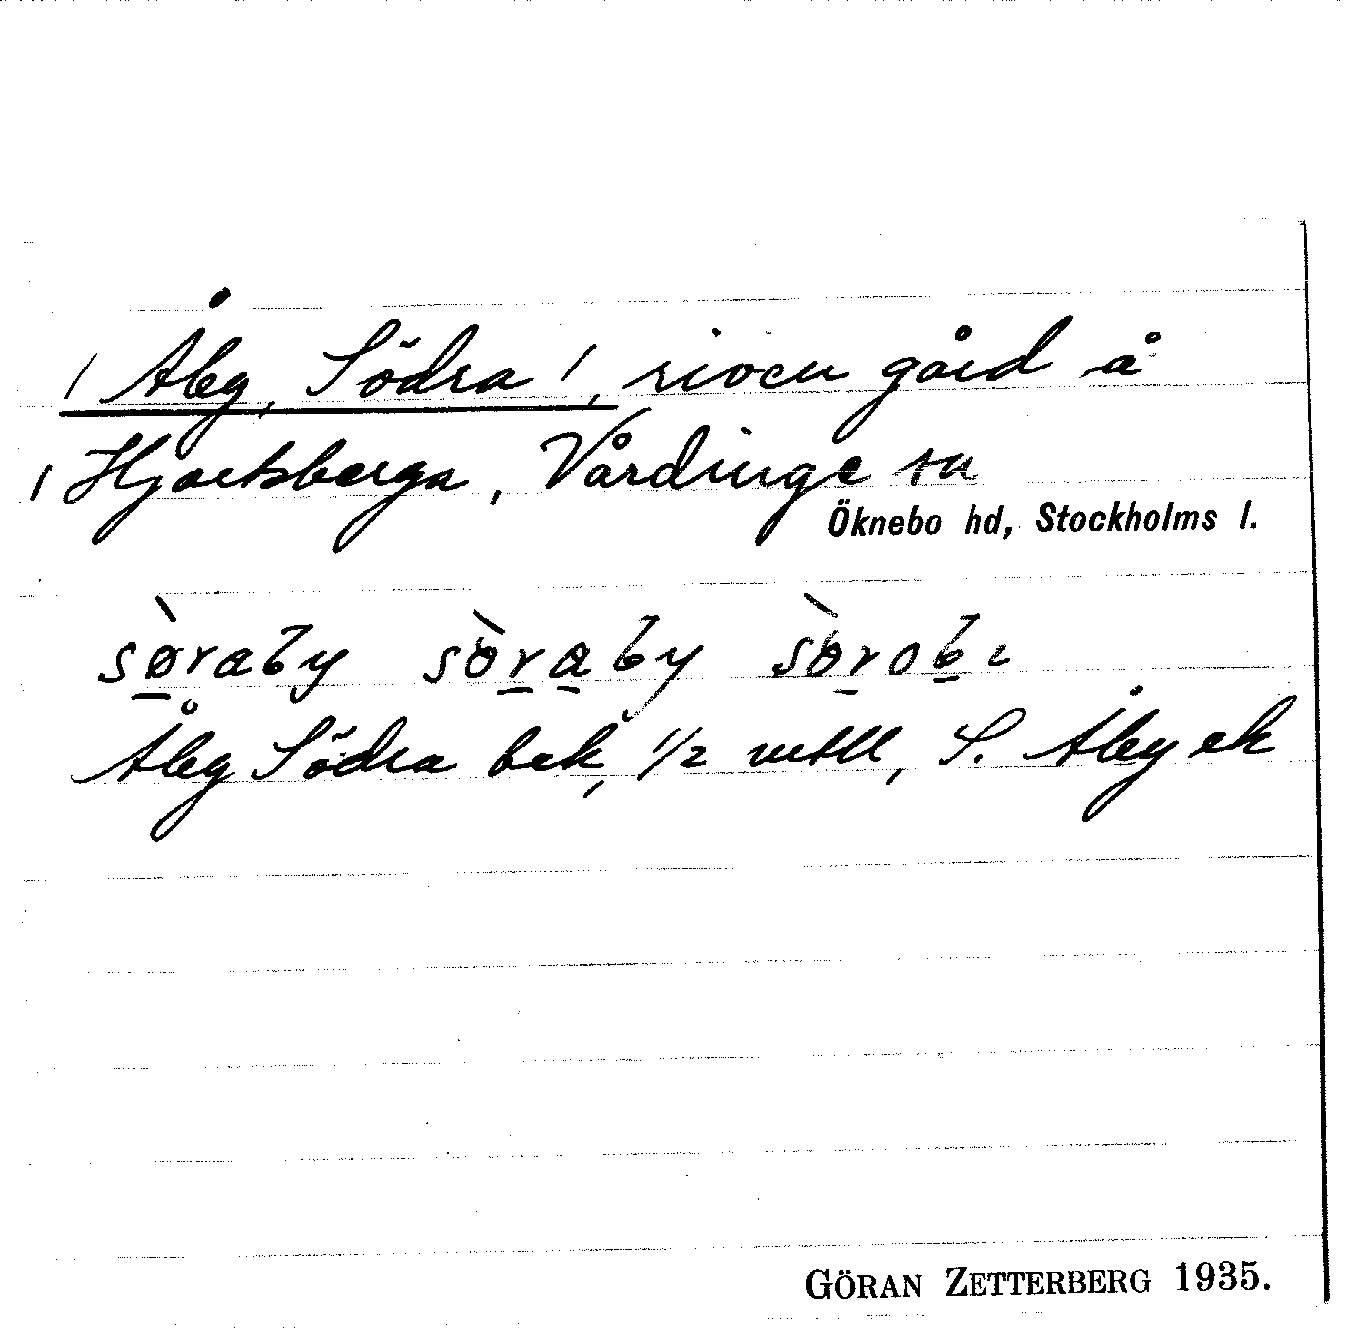 / Åby, Södra /, riven gård å
/ Hjortsberga, Vårdinge sn
Öknebo hd, Stockholms l.
sø̀raby sòraby sòrobi
Åby Södra bek, 1/2 mtll, S. Åby ek
GÖRAN ZETTERBERG 1935.